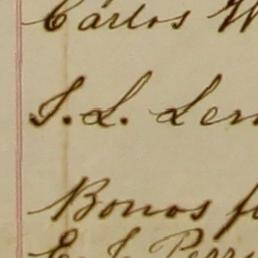 Carlos W
S. L. Len
Bonos f
E. L. Perr